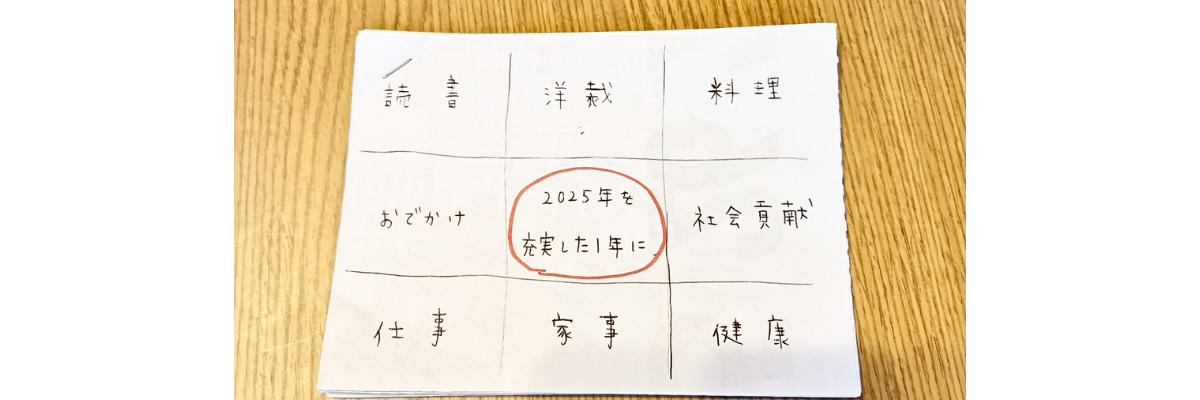 読書 洋裁 料理
おでかけ 2025年を 社会貢献
充実した1年に
仕事 家事 健康